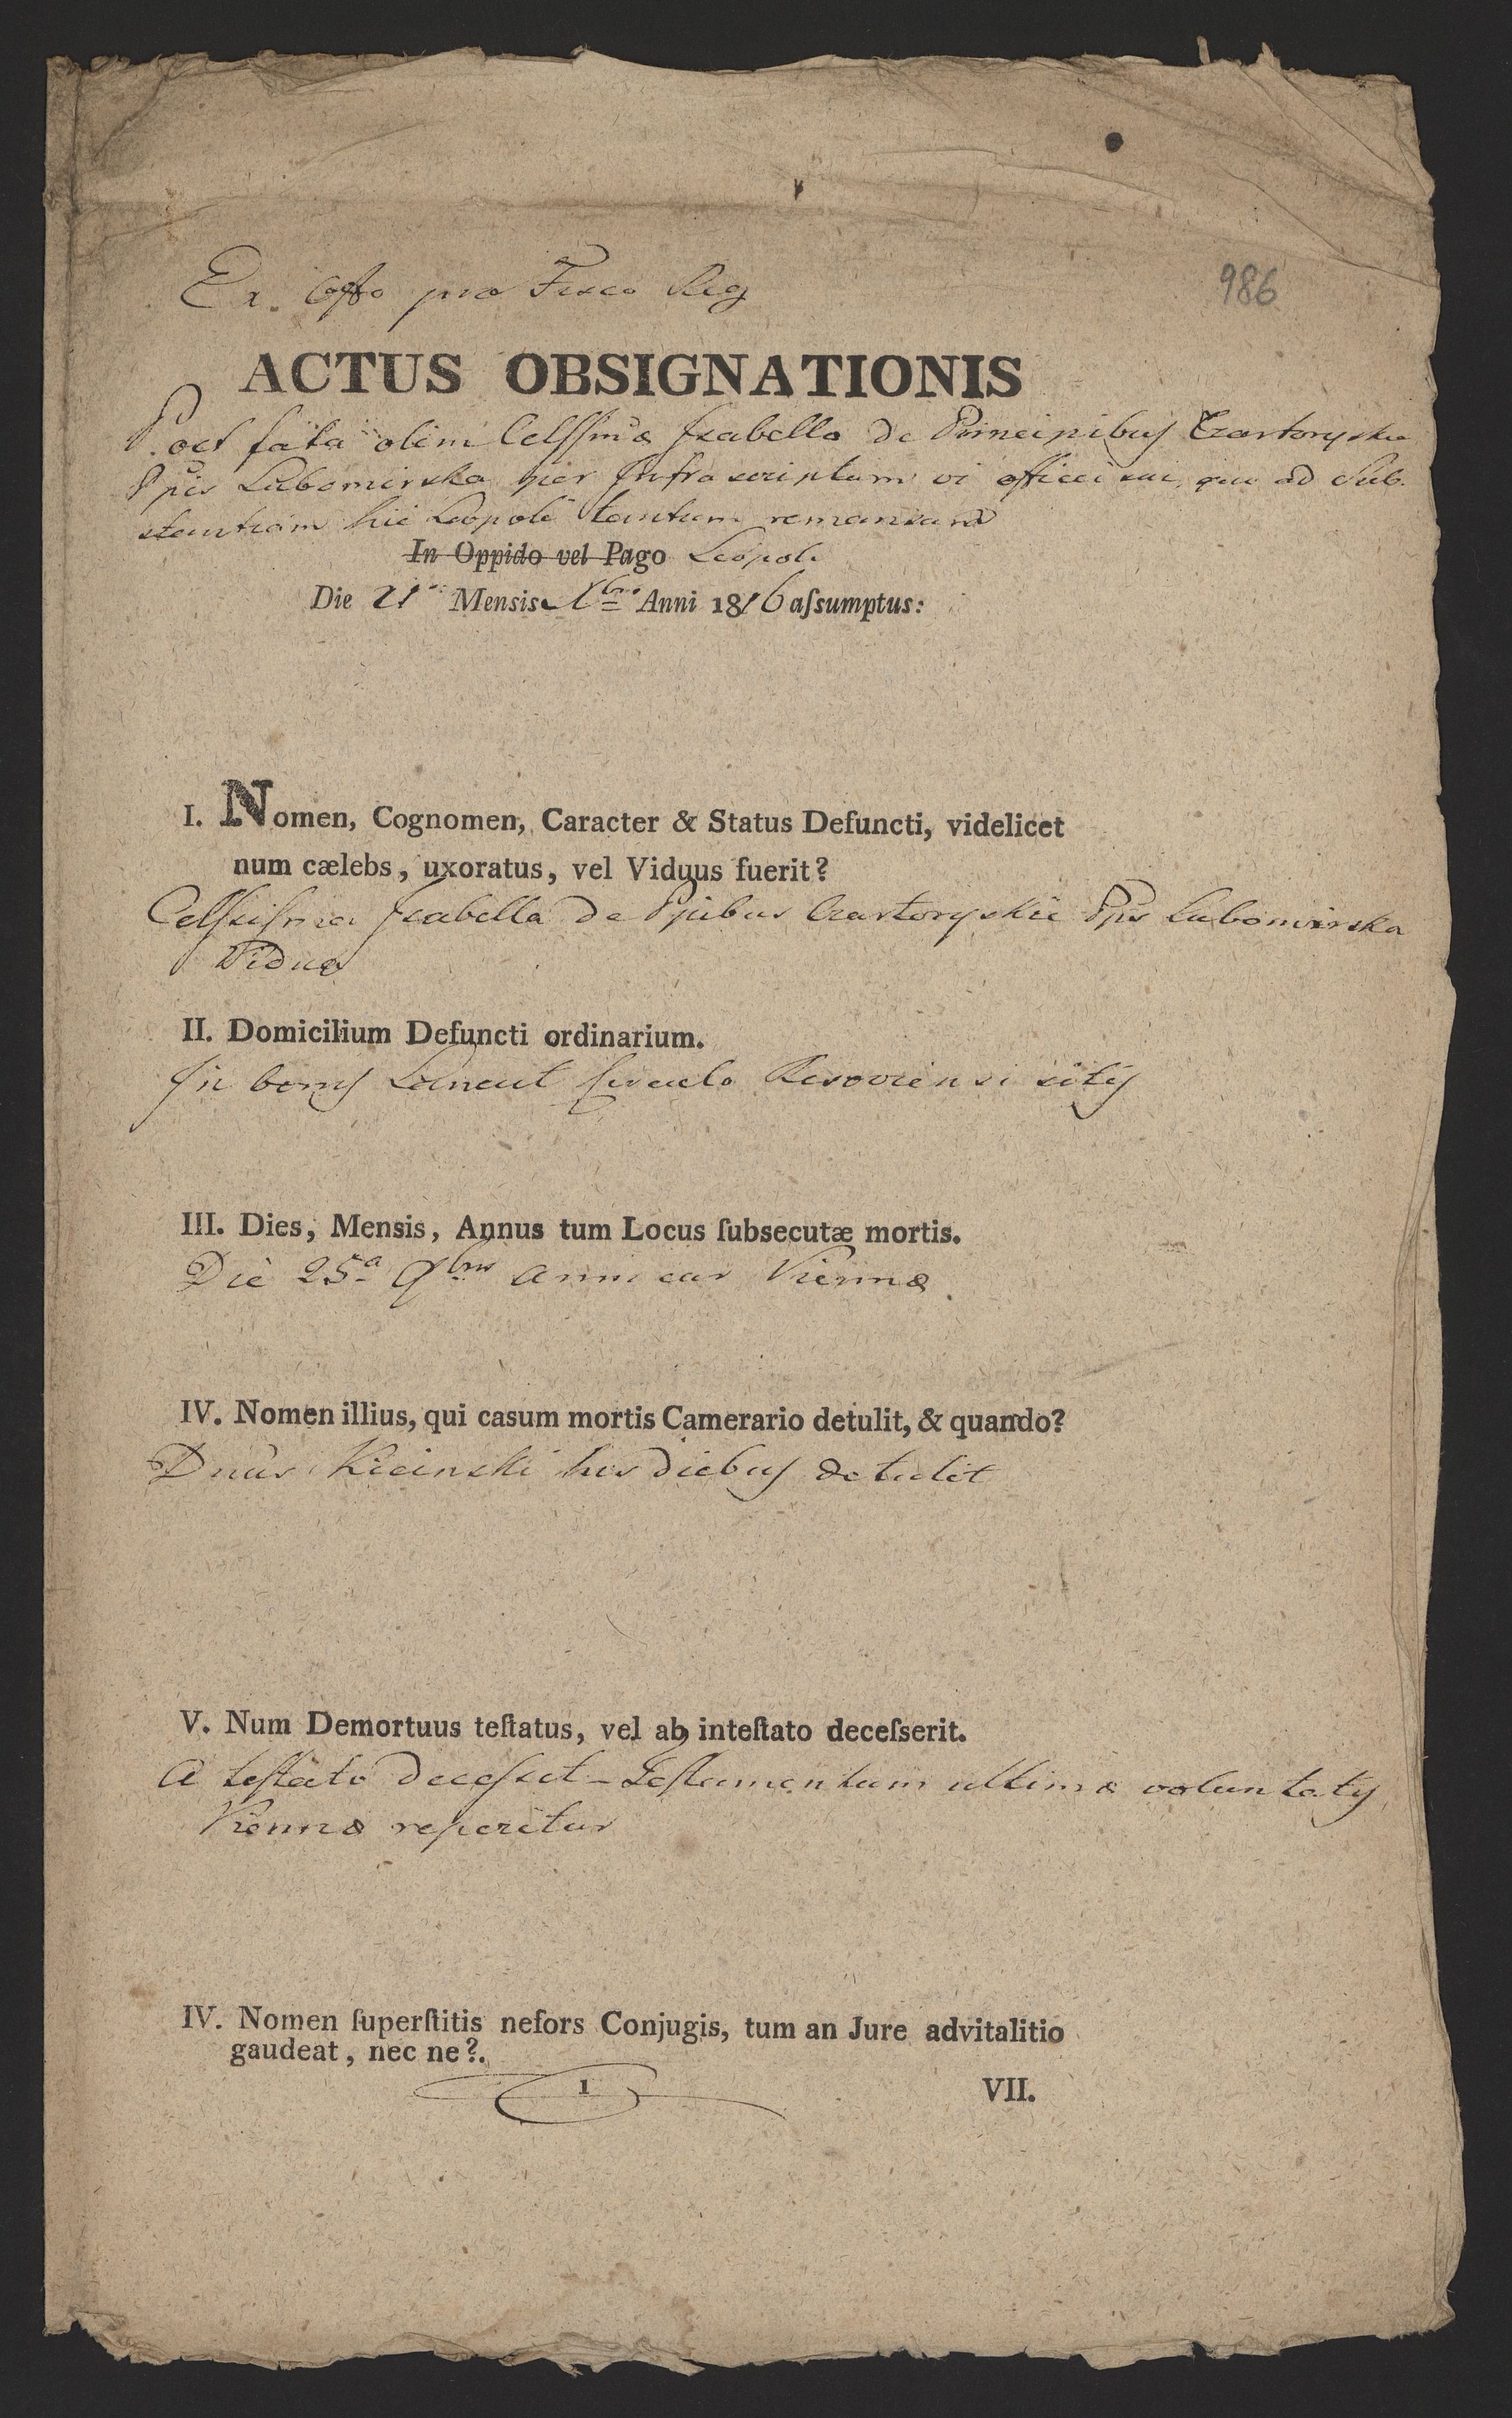 Ex. Offo pro Fisco Reg
986
ACTUS OBSIGNATIONIS
Post fata olim Celssmæ Isabella De Principibus Czartoryskie
Ppis Lubomirska per Infrascriptum vi officii sui, qua ad Sub
stantiam hic Leopoli tantum remansam
In Oppido vel Pago Leopoli
Die 21 Mensis Xbris Anni 1816 aſsumptus:
I. Nomen, Cognomen, Caracter & Status Defuncti, videlicet
num cælebs, uxoratus, vel Viduus fuerit?
Celſsiſsima Isabella De Ppibus Czartoryskie Ppis Lubomirska
Vidua
II. Domicilium Defuncti ordinarium.
In bonis Lancut Circulo Resoviensi sitis
III. Dies, Mensis, Annus tum Locus ſubsecutæ mortis.
Die 25a 9bris anni cur Viennæ.
IV. Nomen illius, qui casum mortis Camerario detulit, & quando?
Dnus Kicinski his diebus detulit
V. Num Demortuus teſtatus, vel ab inteſtato deceſserit.
A teſtato deceſsit – Teſtamentum ultimæ voluntatis
Viennæ reperitur
IV. Nomen ſuperſtitis nefors Conjugis, tum an Jure advitalitio
gaudeat, nec ne?.
1
VII.